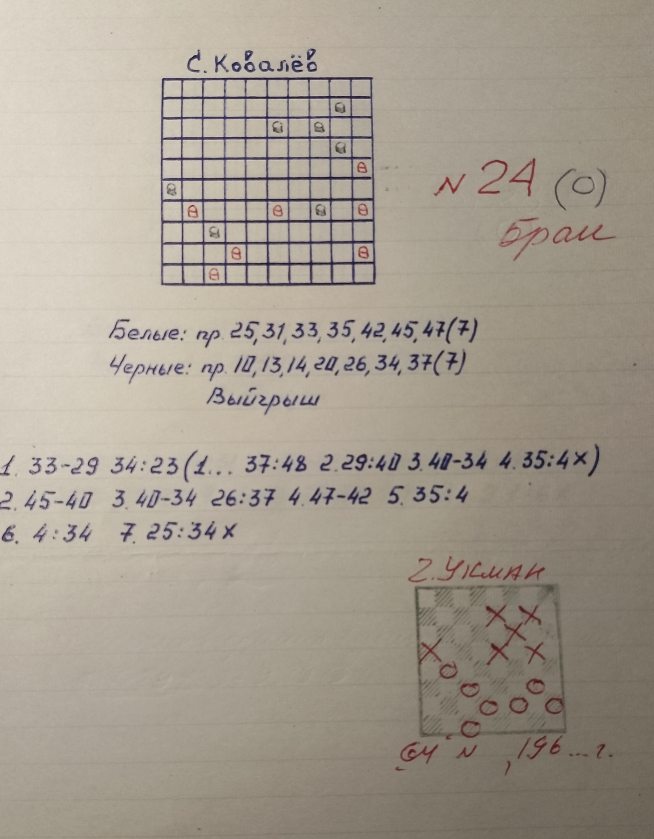 С. Ковалёв
N 24 (0)
Брак
Белые: пр. 25,31,33,35,42,45,47(7)
Черные: пр. 10,13,14,20,26,34,37(7)
Выйгрыш
1. 33-29 34:23(1... 37:48 2.29:40 3.40-34 4.35:4х)
2.45-40 3.40-34 26:37 4.47-42 5.35:4
6. 4:34 7.25:34х
Г. Укман
64 N , 196...г.